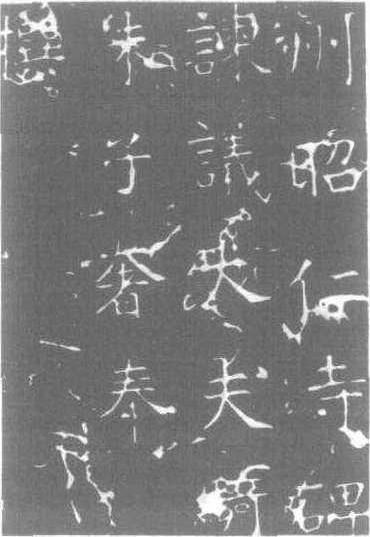 州昭仁寺碑
諫議大夫騎
朱子奢奉
撰